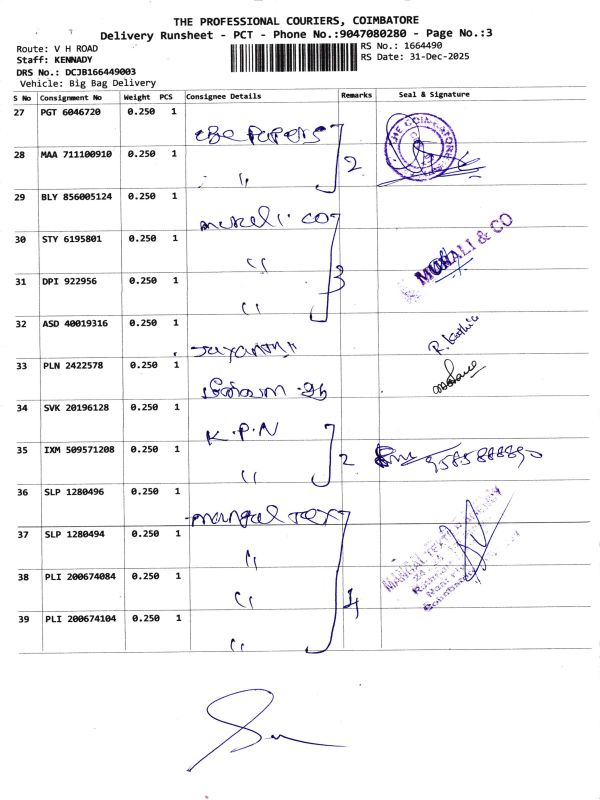 THE PROFESSIONAL COURIERS, COIMBATORE
Delivery Runsheet - PCT - Phone No.:9047080280 - Page No.:3
Route: V H ROAD
RS No.: 1664490
Staff: KENNADY
RS Date: 31-Dec-2025
DRS No.: DCJB166449003
Vehicle: Big Bag Delivery
S No Consignment No Weight PCS Consignee Details Remarks Seal & Signature
27 PGT 6046720 0.250 1 Papers
28 MAA 711100910 0.250 1 " 2
29 BLY 856005124 0.250 1 murali. co
30 STY 6195801 0.250 1 " MURALI & CO
31 DPI 922956 0.250 1 " 3
32 ASD 40019316 0.250 1 R. Kathir
33 PLN 2422578 0.250 1
34 SVK 20196128 0.250 1 K.P.N
35 IXM 509571208 0.250 1 " 2
36 SLP 1280496 0.250 1 mangal Tex
37 SLP 1280494 0.250 1 "
38 PLI 200674084 0.250 1 " 4
39 PLI 200674104 0.250 1 "